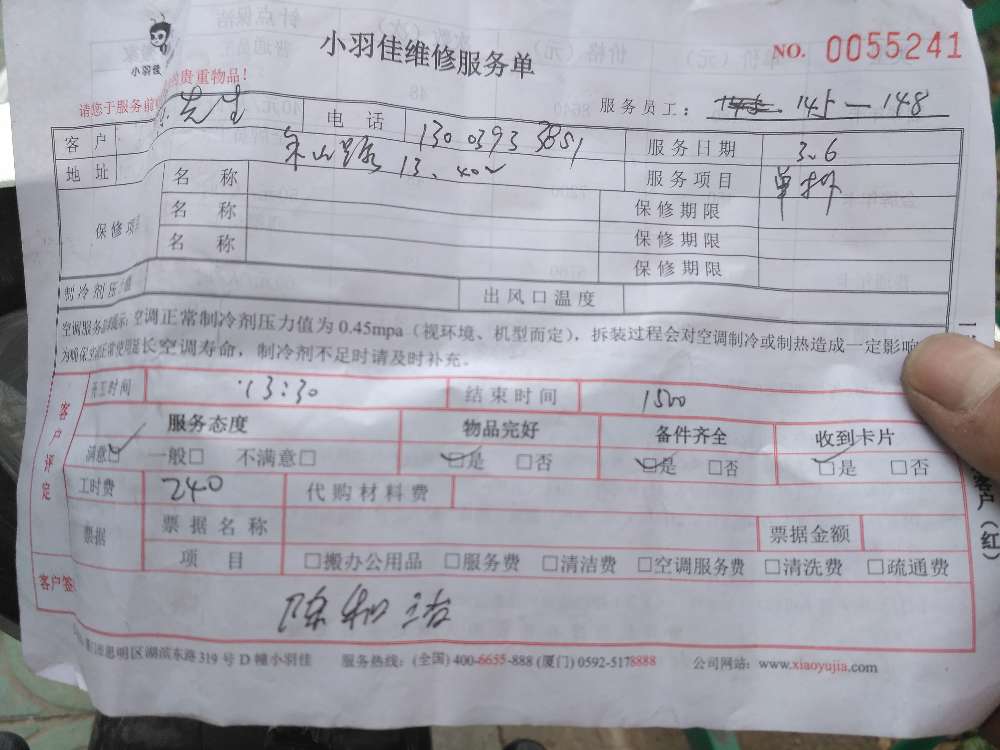 小羽佳
小羽佳维修服务单
NO. 0055241
请您于服务前 的贵重物品！
服务员工： 145—148
客户 先生 电话 130 0393 3881 服务日期 3.6
地址 山路 13.402 服务项目 单拆
保修项 名称 保修期限
名称 保修期限
名称 保修期限
制冷剂压力值 出风口温度
空调服务 提示：空调正常制冷剂压力值为 0.45mpa（视环境、机型而定），拆装过程会对空调制冷或制热造成一定影响
为确保空调正常使用 延长空调寿命，制冷剂不足时请及时补充。
客户评定
开工时间 13:30 结束时间 1500
服务态度 物品完好 备件齐全 收到卡片
满意☑ 一般□ 不满意□ ☑是 □否 ☑是 □否 ☑是 □否
工时费 240 代购材料费
票据 票据名称 票据金额
项目 □搬办公用品 □服务费 □清洁费 □空调服务费 □清洗费 □疏通费
客户签
客户（红）
思明区湖滨东路 319 号 D 幢小羽佳 服务热线：(全国) 400-6655-888 (厦门) 0592-5178888 公司网站：www.xiaoyujia.com